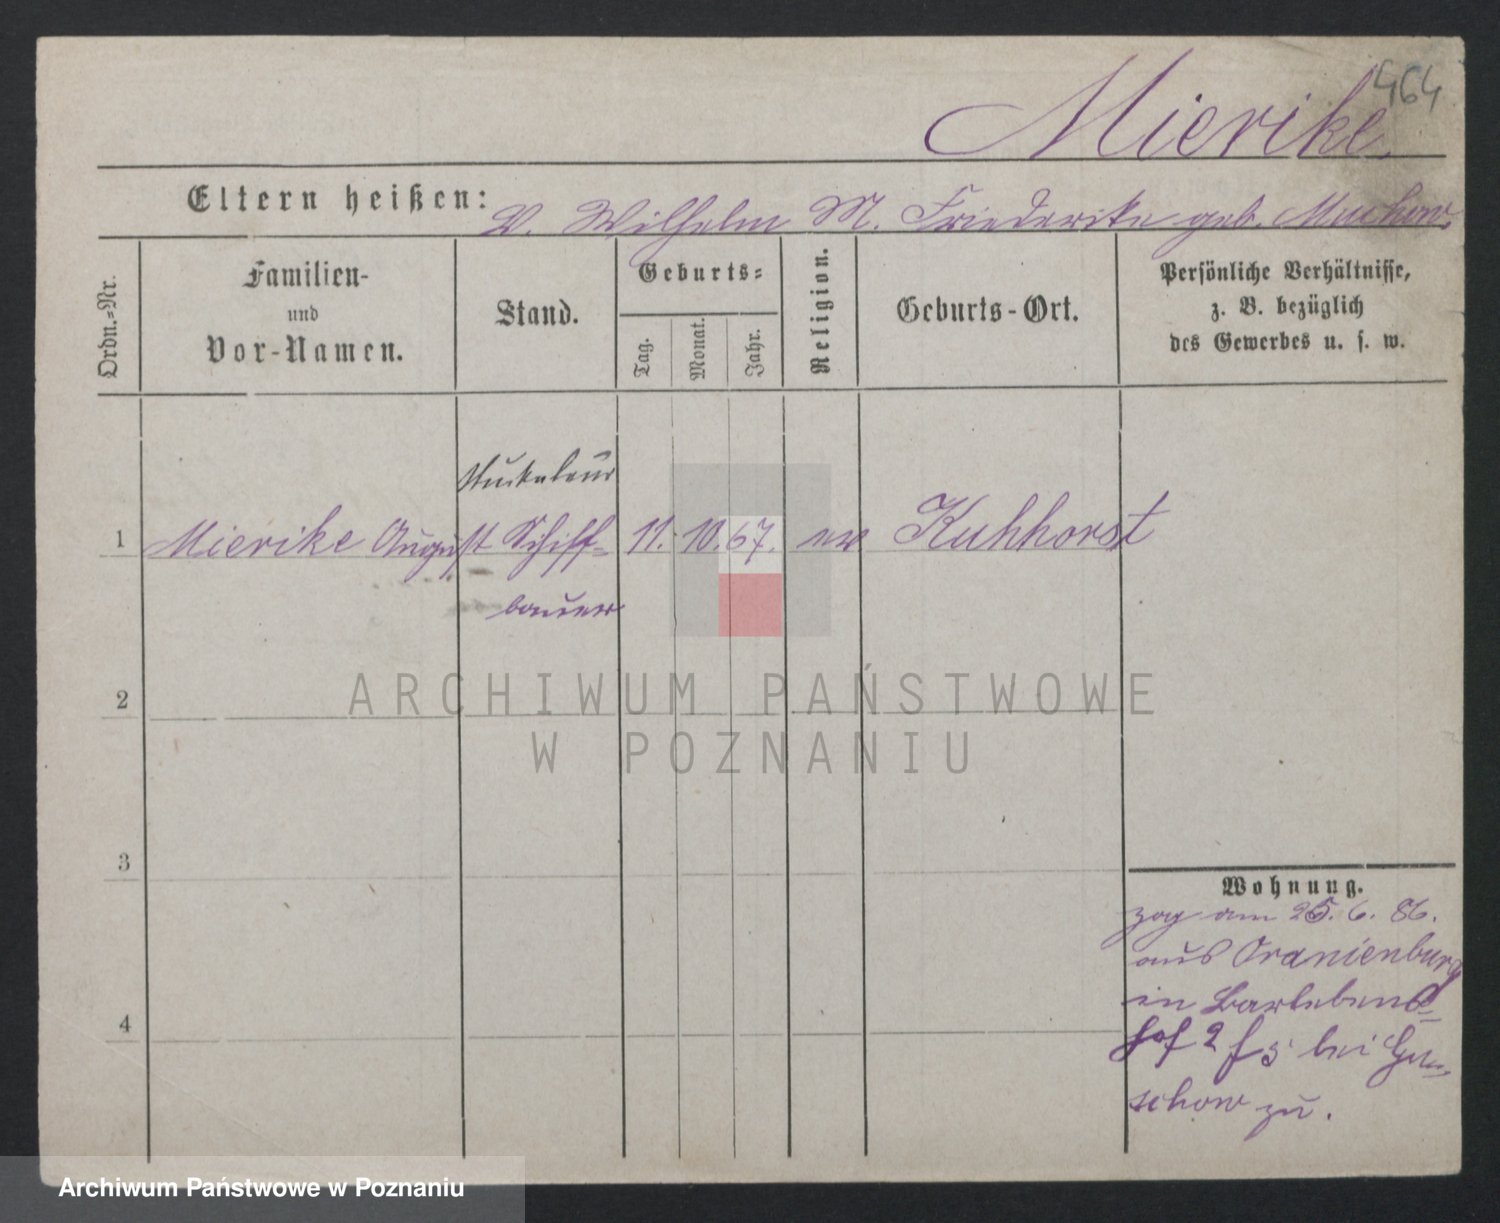 464
Mierike
Eltern heißen: V. Wilhelm M. Friederike geb. Muchow
Ordn.=Nr.
Familien-
und
Vor-Namen.
Stand.
Geburts=
Tag.
Monat.
Jahr.
Religion.
Geburts-Ort.
Persönliche Verhältnisse,
z. B. bezüglich
des Gewerbes u. s. w.
Stuckateur
1 Mierike August Schiff= 11. 10. 67. ev Kuhhorst
bauer
2
ARCHIWUM PAŃSTWOWE
W POZNANIU
3
Wohnung.
zog am 25. 6. 86.
aus Oranienburg
in Barlebens=
hof 2 f 5 bei
schow zu.
4
Archiwum Państwowe w Poznaniu